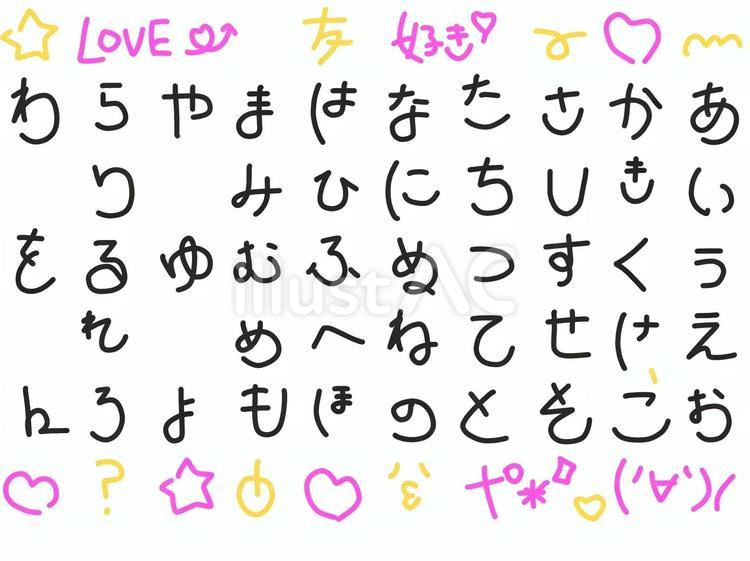 ☆ LOVE 友 好き♡ ♡
あいうえお
かきくけこ
さしすせそ
たちつてと
なにぬねの
はひふへほ
まみむめも
やゆよ
らりるれろ
わをん
♡ ? ☆ ♡ ♡ ('∀')/
illustAC